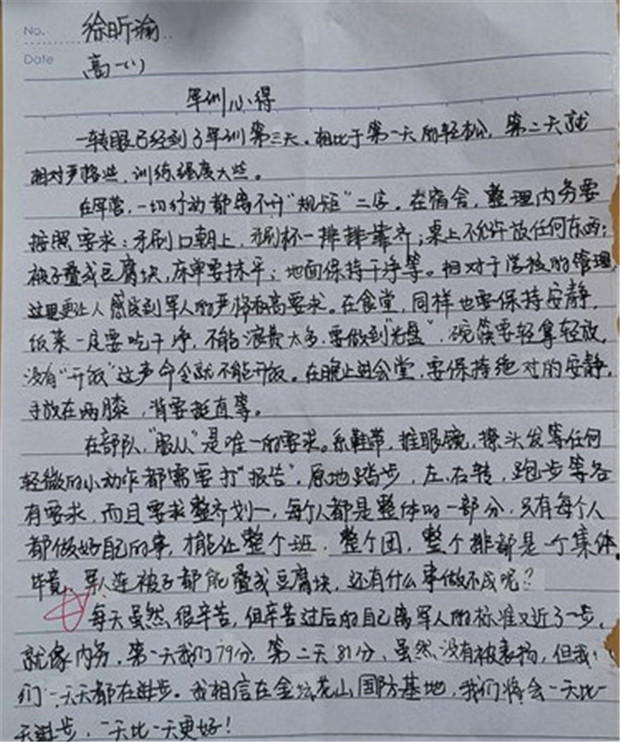 No. 徐昕瀹
Date 高一(1)
军训心得
一转眼已经到了军训第三天。相比于第一天的轻松，第二天就
相对严格些，训练强度大些。
在军营，一切行动都离不开“规矩”二字。在宿舍，整理内务要
按照要求：牙刷口朝上，牙刷杯一排排靠齐；桌上不允许放任何东西；
被子叠成豆腐块，床单要抹平；地面保持干净等。相对于学校的管理，
这里更让人感受到军人的严格和高要求。在食堂，同样也要保持安静，
饭菜一定要吃干净，不能浪费太多，要做到“光盘”，碗筷要轻拿轻放，
没有“开饭”这声命令就不能开饭。在晚上进会堂，要保持绝对的安静，
手放在两膝，背要挺直等。
在部队，“服从”是唯一的要求。系鞋带，推眼镜，撩头发等任何
轻微的小动作都需要打“报告”。原地踏步，左、右转，跑步等各
有要求，而且要求整齐划一，每个人都是整体的一部分，只有每个人
都做好自己的事，才能让整个班，整个团，整个排都是一个集体。
毕竟，军人连被子都能叠成豆腐块，还有什么事做不成呢？
每天虽然很辛苦，但辛苦过后的自己离军人的标准又近了一步，
就像内务，第一天我们79分，第二天81分，虽然没有被表扬，但我
们一天天都在进步。我相信在金坛茅山国防基地，我们将会一天比一
天进步，一天比一天更好！